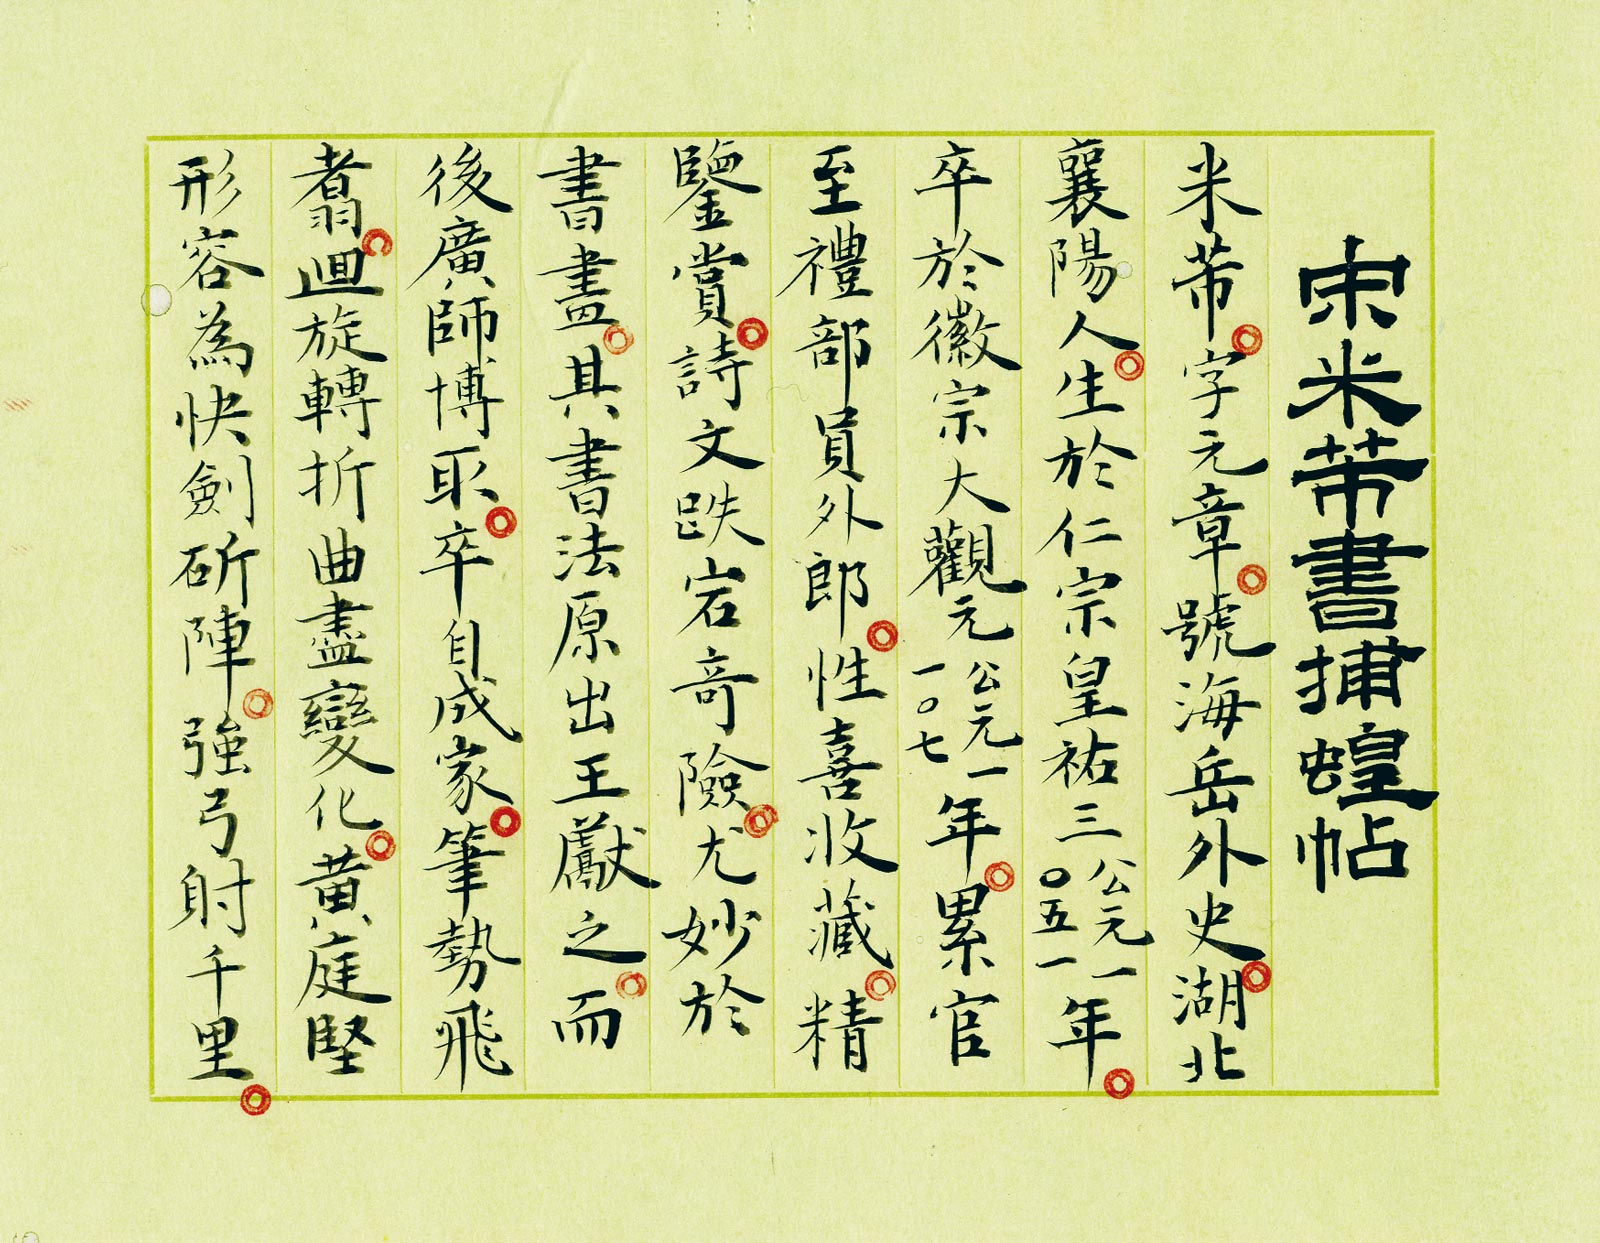 宋米芾書捕蝗帖
米芾。字元章。號海岳外史。湖北
襄陽人。生於仁宗皇祐三公元一〇五一年。
卒於徽宗大觀元公元一一〇七年。累官
至禮部員外郎。性喜收藏。精
鑒賞。詩文跌宕奇險。尤妙於
書畫。其書法原出王獻之。而
後廣師博取。卒自成家。筆勢飛
翥。迴旋轉折曲盡變化。黃庭堅
形容為快劍斫陣。強弓射千里。